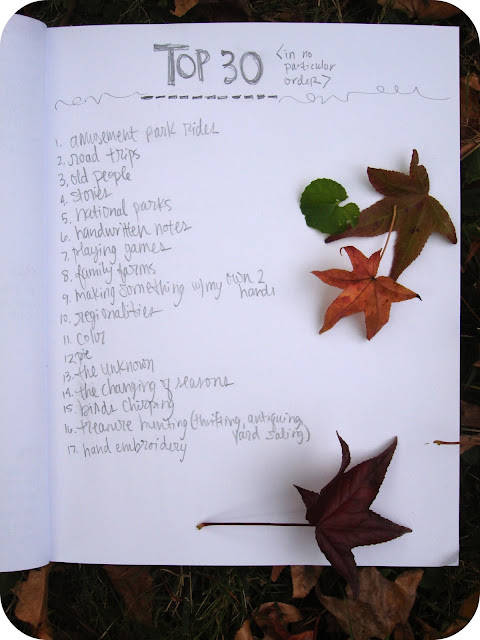 TOP 30
<in no
particular
order>
1. amusement park rides
2. road trips
3. old people
4. stories
5. national parks
6. handwritten notes
7. playing games
8. family farms
9. making something w/my own 2
hands
10. regionalities
11. color
12. pie
13. the unknown
14. the changing of seasons
15. birds chirping
16. treasure hunting (thrifting, antiquing,
yard saling)
17. hand embroidery